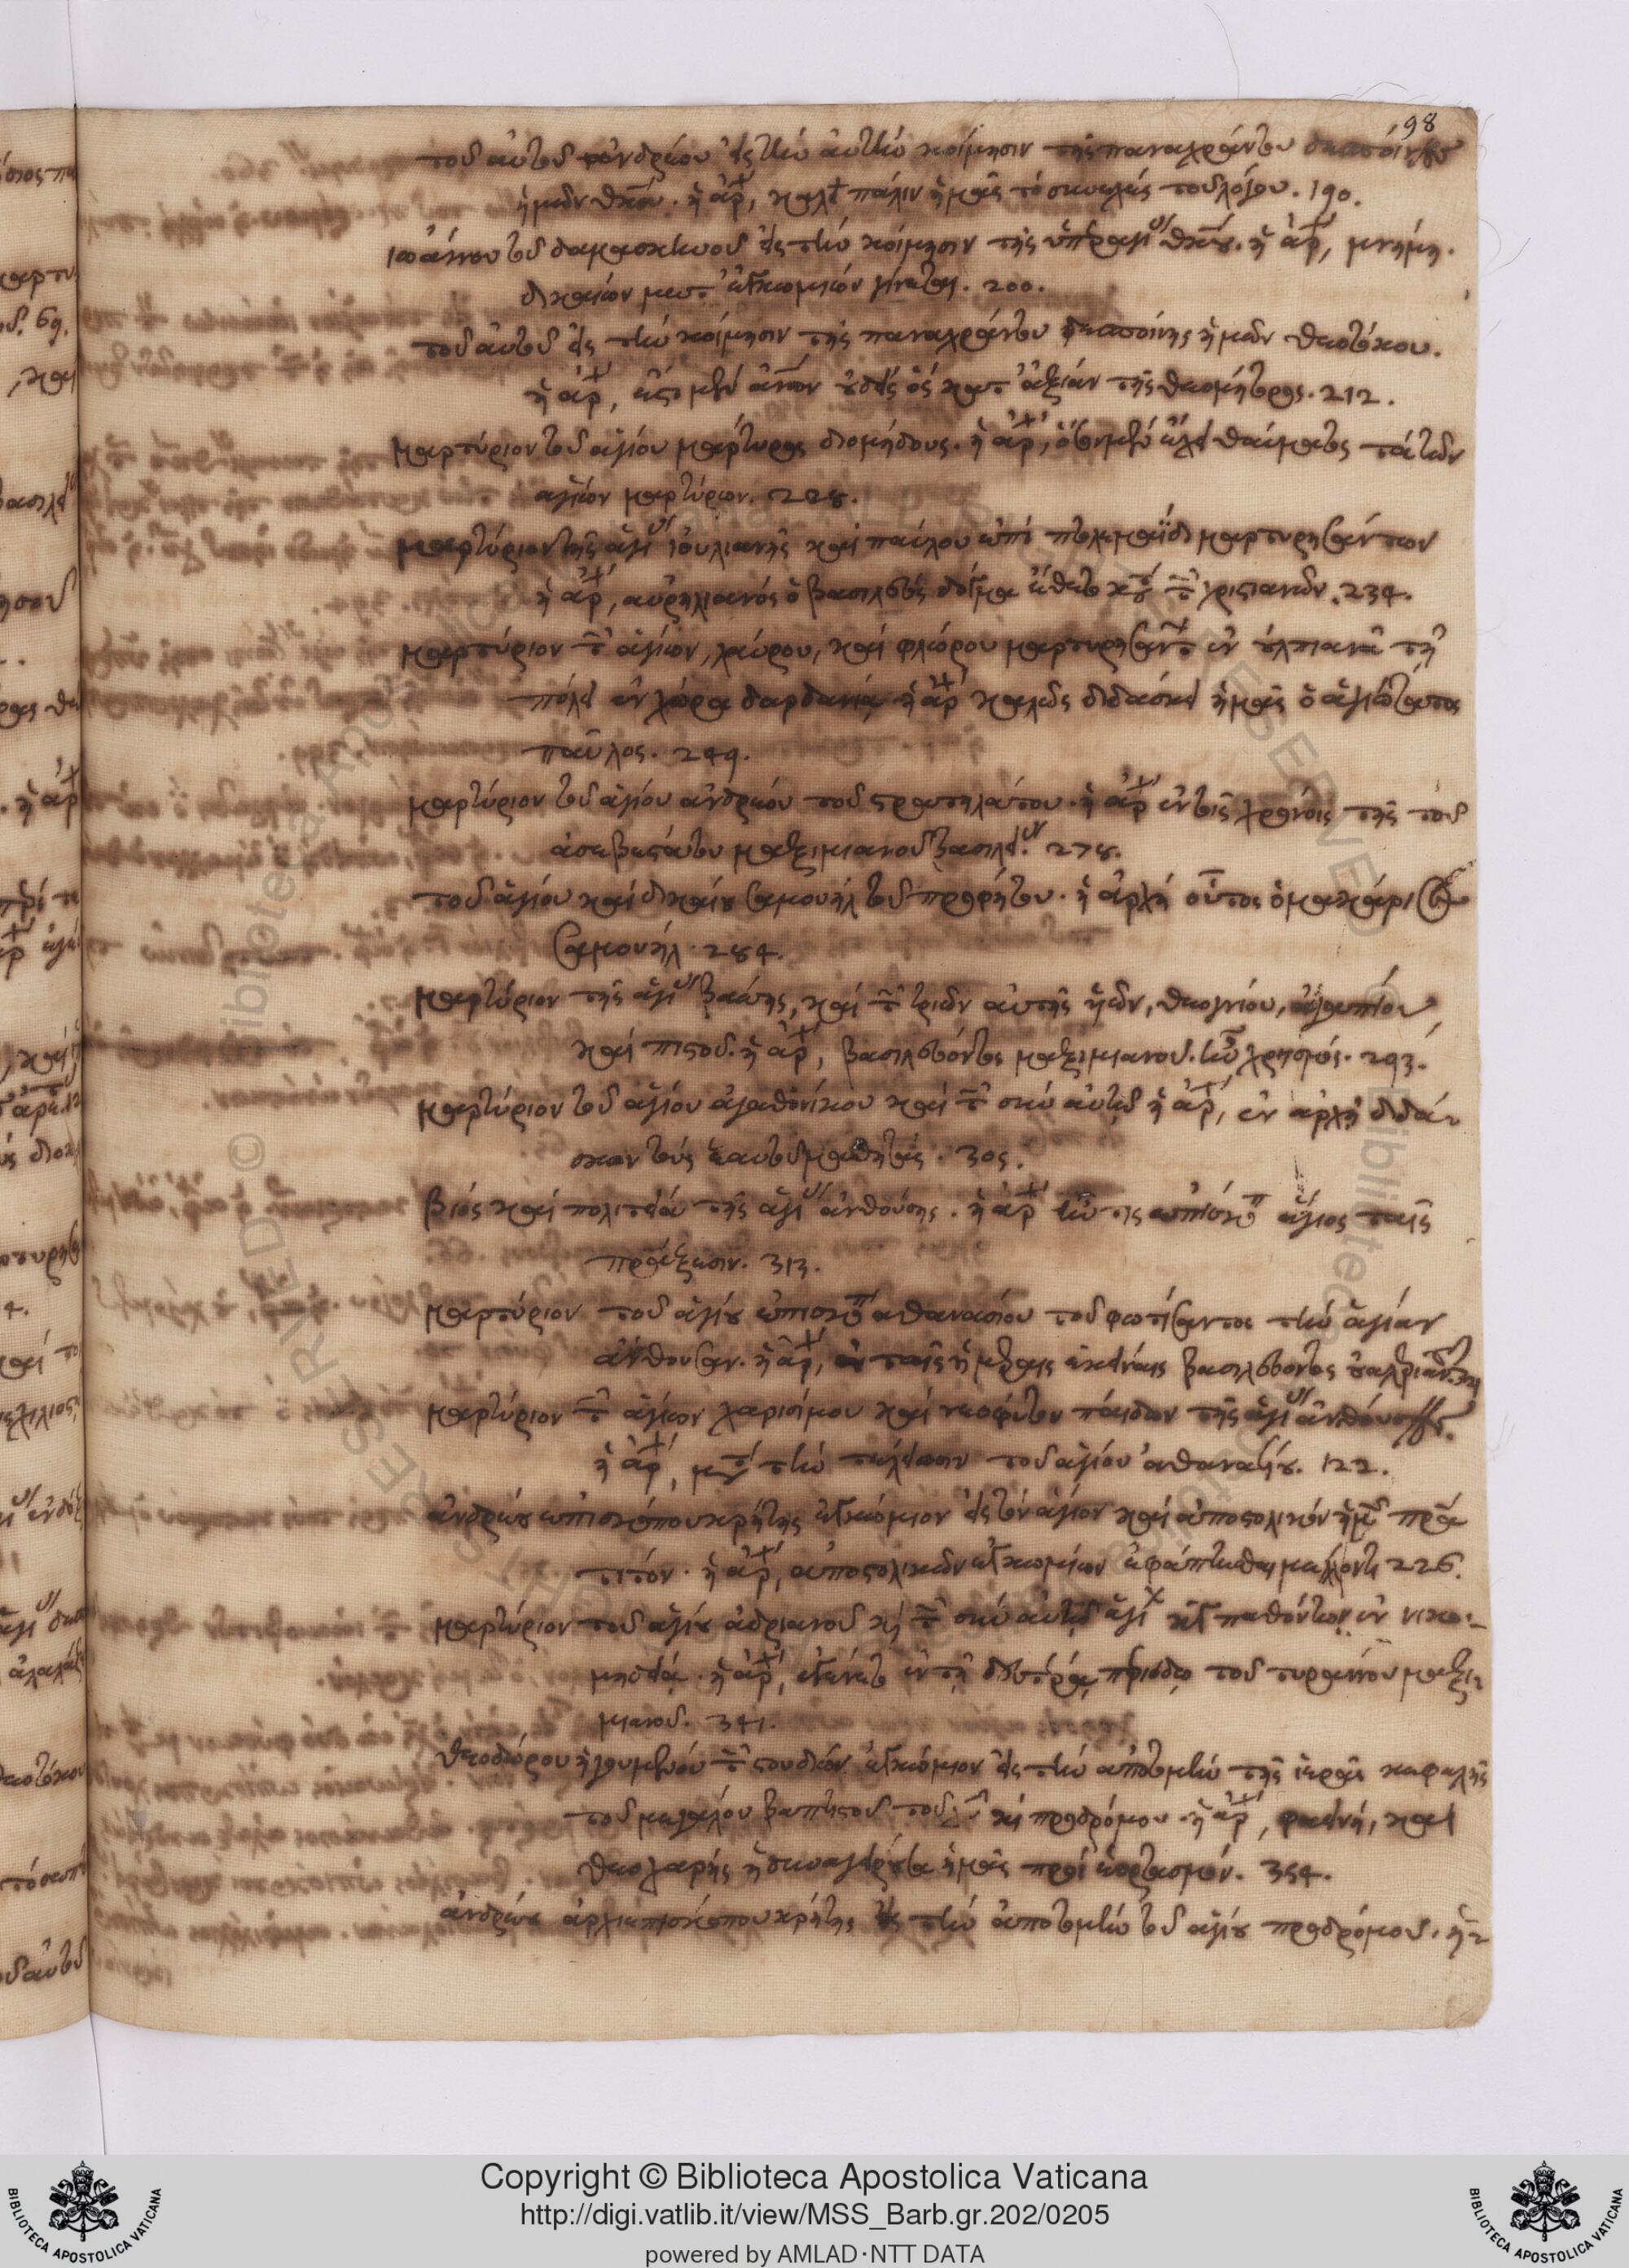 98
τοῦ αὐτοῦ ἀνδρέου εἰς τὴν αὐτὴν κοίμησιν τῆς παναχράντου δεσποίνης
ἡμῶν θκου. ἡ ἀρχ, καλεῖ πάλιν ἡμᾶς τὸ συνεχὲς τοῦ λόγου. 190.
ἰωάννου τοῦ δαμασκηνοῦ εἰς τὴν κοίμησιν τῆς ὑπεραγι θκου. ἡ ἀρχ, μνήμη.
δικαίων μετ' ἐγκωμίων γίνεται. 200.
τοῦ αὐτοῦ εἰς τὴν κοίμησιν τῆς παναχράντου δεσποίνης ἡμῶν θεοτόκου.
ἡ ἀρχ, ἔστι μὲν ἀνων οὐδεὶς ὃς κατ' ἀξίαν τῆς θεομήτορος. 212.
μαρτύριον τοῦ ἁγίου μάρτυρος διομήδους. ἡ ἀρχ, ὅτι μὲν ἔχει θαύματος τὰ τῶν
ἁγίων μαρτύρων. 228.
μαρτύριον τῆς ἁγι ἰουλιανῆς καὶ παύλου ἐπὶ πτολεμαΐδι μαρτυρησάντων
ἡ ἀρχ, αὐρηλιανὸς ὁ βασιλεὺς δόγμα ἔθετο κτ τ χριστιανῶν. 234.
μαρτύριον τ ἁγίων, λαύρου, καὶ φλώρου μαρτυρησάντ ἐν ὑλπιανᾶ τῇ
πόλει ἐν χώρα δαρδανίᾳ ἡ ἀρχ καλῶς διδάσκει ἡμᾶς ὁ ἁγιώτατος
παῦλος. 249.
μαρτύριον τοῦ ἁγίου ἀνδρέου τοῦ στρατηλάτου. ἡ ἀρχ ἐν τοῖς χρόνοις τῆς τοῦ
ἀσεβεστάτου μαξιμιανοῦ βασιλει. 278.
τοῦ ἁγίου καὶ δικαίου σαμουὴλ τοῦ προφήτου. ἡ ἀρχὴ οὗτος ὁ μακάριος
σαμουήλ. 284.
μαρτύριον τῆς ἁγι βάσσης, καὶ τ τριῶν αὐτῆς υἱῶν, θεογνίου, ἀγαπίου,
καὶ πιστοῦ. ἡ ἀρχ, βασιλεύοντος μαξιμιανοῦ. ἦν χρησμός. 293.
μαρτύριον τοῦ ἁγίου ἀγαθονίκου καὶ τ σὺν αὐτῶ ἡ ἀρχ, ἐν ἀρχῇ διδά-
σκων τοὺς ἑαυτοῦ μαθητάς. 305.
βίος καὶ πολιτεία τῆς ἁγι ἀνθούσης. ἡ ἀρχ ἦν τις ἐπίσκοπ ἅγιος ταῖς
πράξεσιν. 313.
μαρτύριον τοῦ ἁγίου ἐπισκοπ ἀθανασίου τοῦ φωτίσαντος τὴν ἁγίαν
ἀνθοῦσαν. ἡ ἀρχ, ἐν ταῖς ἡμέραις ἐκείναις βασιλεύοντος οὐαλεριανοῦ. 321
μαρτύριον τ ἁγίων χαρισίμου καὶ νεοφύτου παίδων τῆς ἁγι ἀνθούσης.
ἡ ἀρχ, μετ τὴν τελείωσιν τοῦ ἁγίου ἀθανασίου. 122.
ἀνδρέου ἐπισκόπου κρήτης ἐγκώμιον εἰς τὸν ἅγιον καὶ ἀποστολικὸν ἡμ πρα
τίτον. ἡ ἀρχ, ἀποστολικῶν ἐγκωμίων ἐφάπτεσθαι μέλλοντι 226.
μαρτύριον τοῦ ἁγίου ἀδριανοῦ κὶ τ σὺν αὐτῶ ἁγί κγ παθόντων ἐν νικο-
μηδείᾳ. ἡ ἀρχ, ἐγένετο ἐν τῇ δευτέρᾳ περιόδῳ τοῦ τυράννου μαξι-
μιανοῦ. 341.
θεοδώρου ἡγουμένου τ στουδίων ἐγκώμιον εἰς τὴν ἀποτομὴν τῆς ἱερᾶς κεφαλῆς
τοῦ μεγάλου βαπτιστοῦ τοῦ χῦ κὶ προδρόμου. ἡ ἀρχ, φαεινή, καὶ
θεοχαρὴς ἡ συναγείρουσα ἡμᾶς πρὸς ἑορτασμόν. 354.
ἀνδρέου ἀρχιεπισκόπου κρήτης εἰς τὴν ἀποτομὴν τοῦ ἁγίου προδρόμου. ἡ-
Copyright © Biblioteca Apostolica Vaticana
http://digi.vatlib.it/view/MSS_Barb.gr.202/0205
powered by AMLAD·NTT DATA
BIBLIOTECA APOSTOLICA VATICANA
BIBLIOTECA APOSTOLICA VATICANA